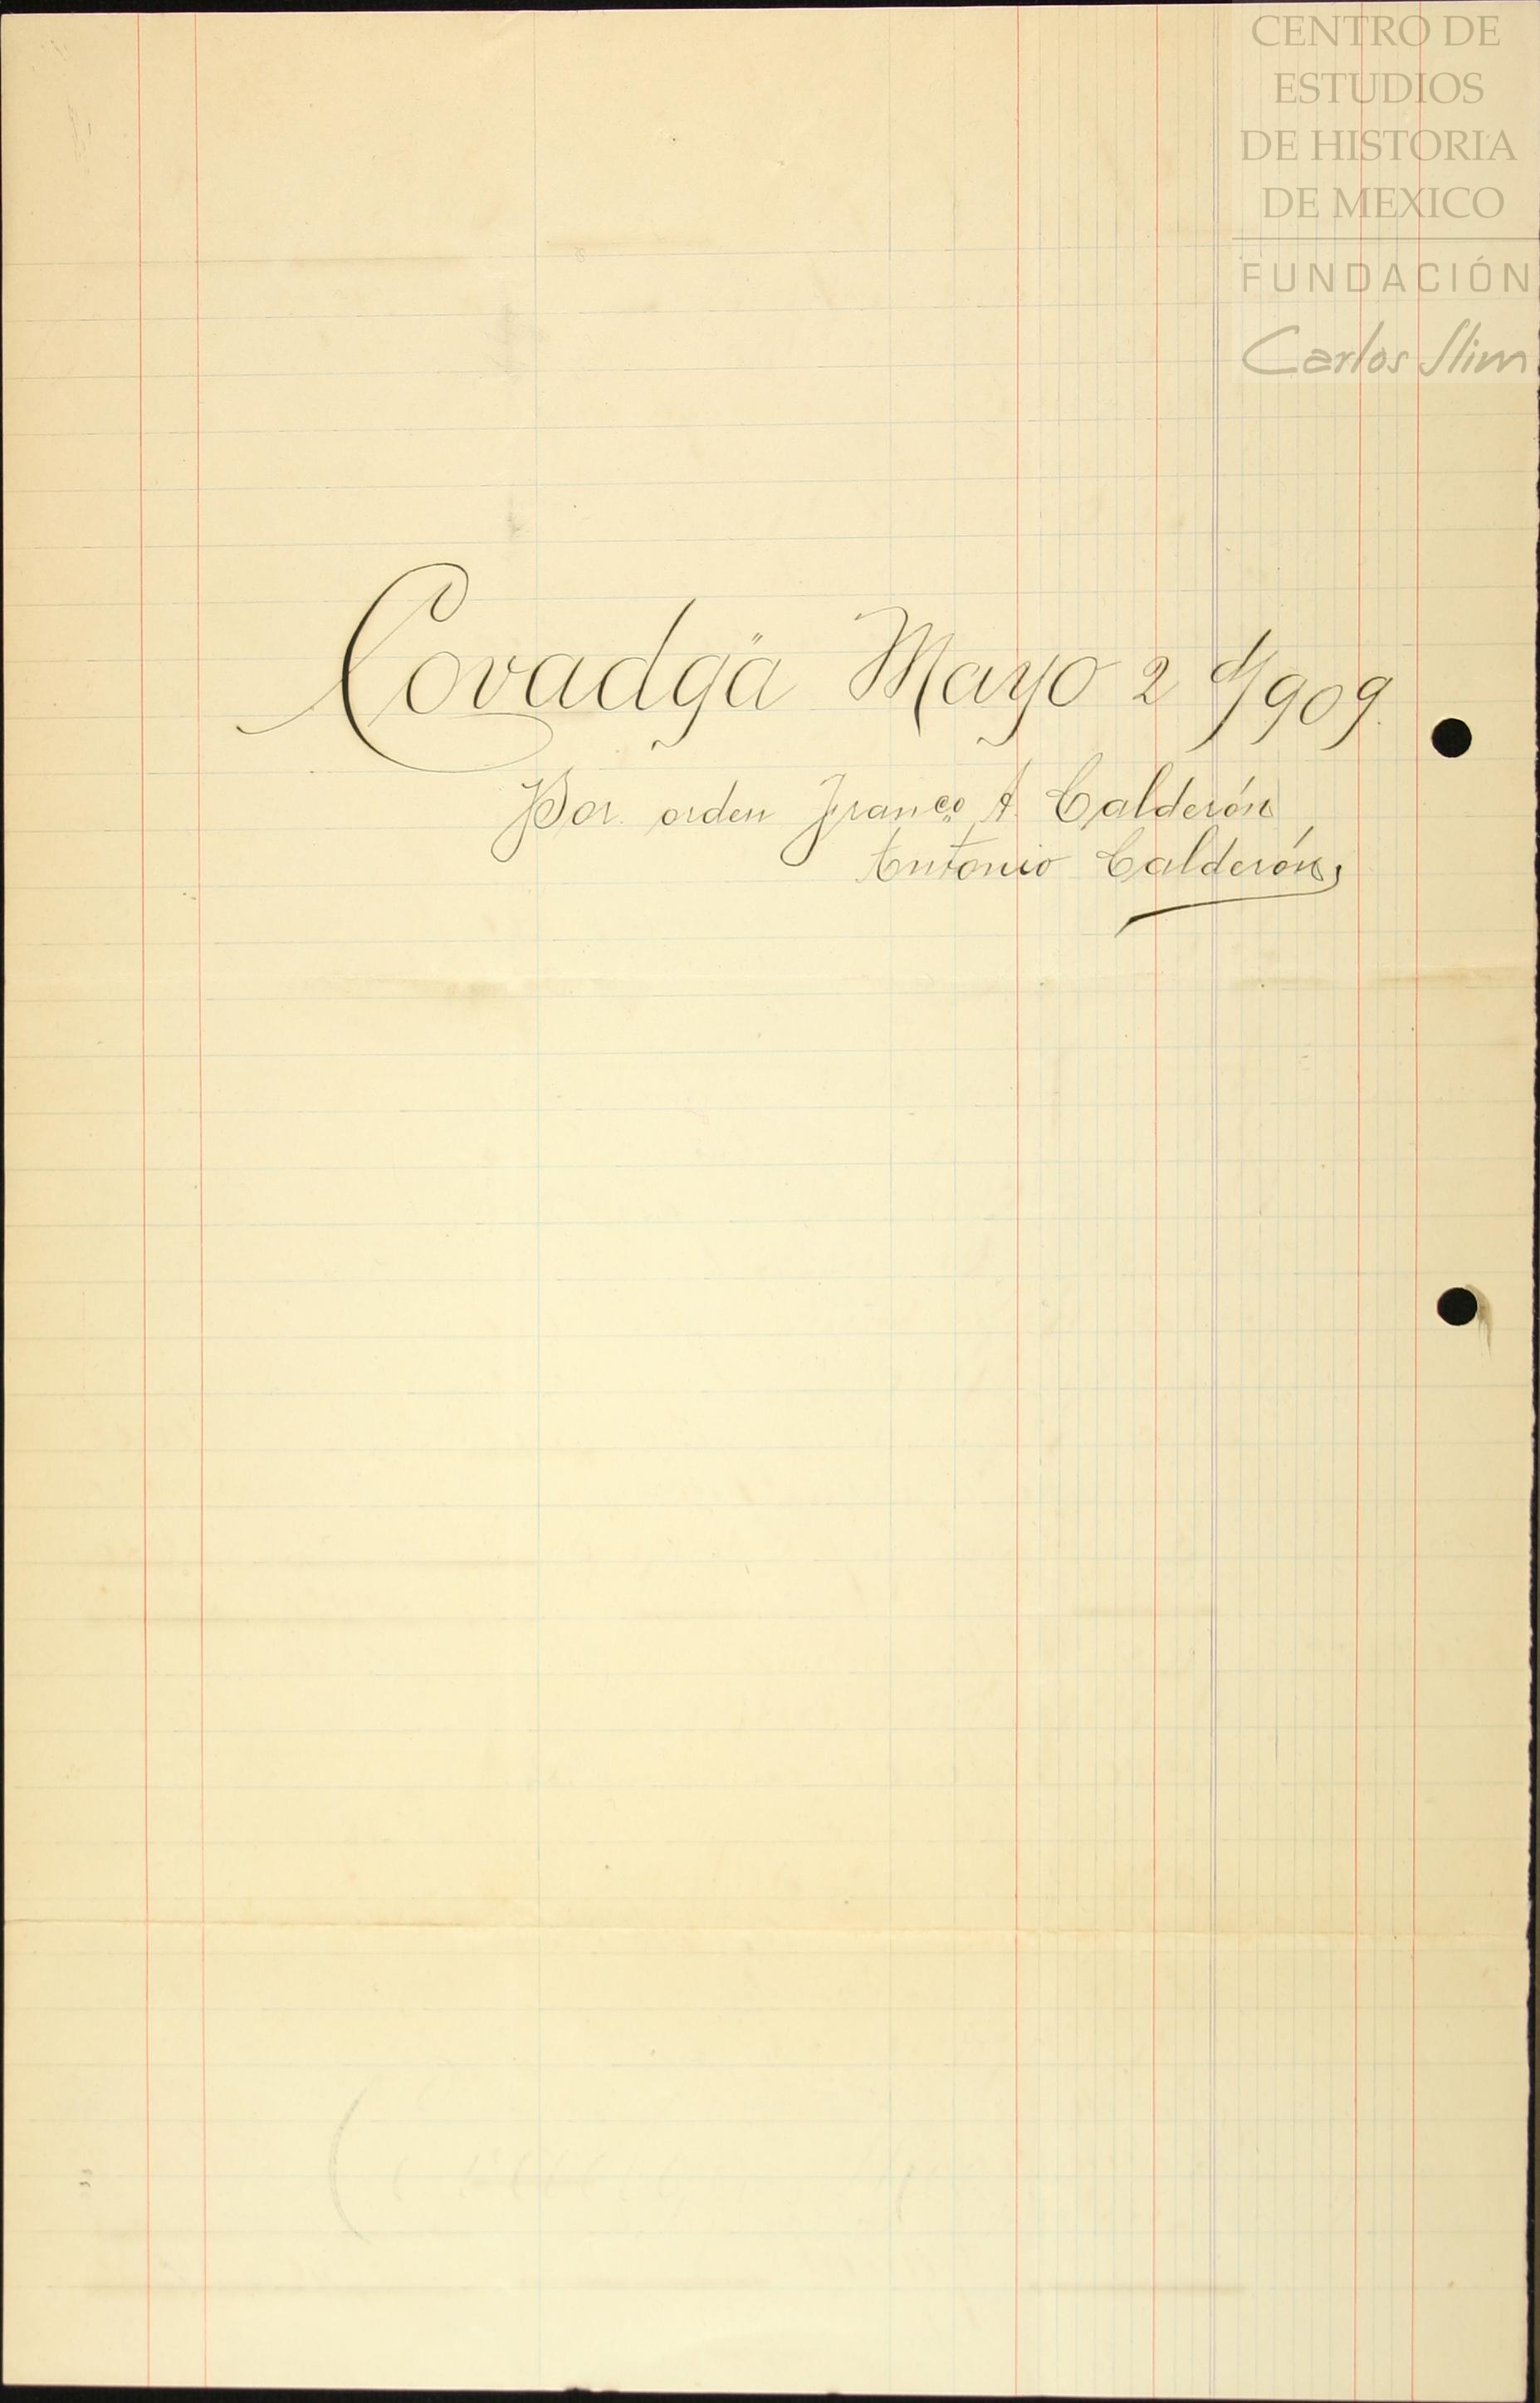 CENTRO DE
ESTUDIOS
DE HISTORIA
DE MEXICO
FUNDACIÓN
Carlos Slim
Covadgä Mayo 2 d/1909.
Por orden Franco A. Calderón
Antonio Calderón